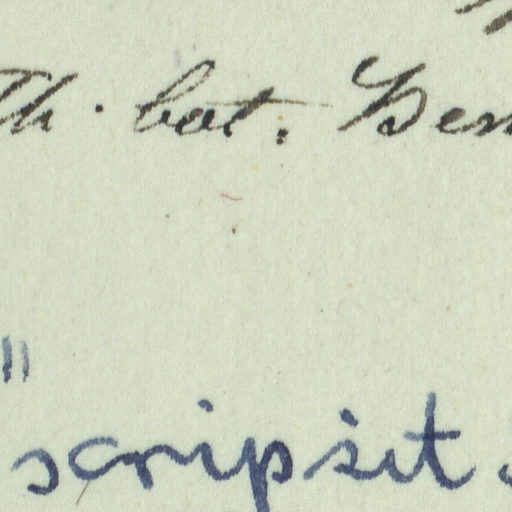 h. bot. Gen
"
scripsit.